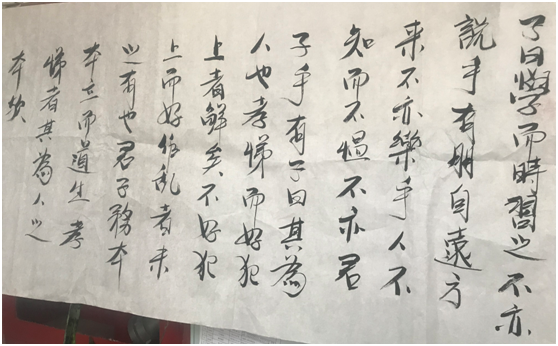 子曰學而時習之不亦
說乎有朋自遠方
来不亦樂乎人不
知而不愠不亦君
子乎有子曰其為
人也孝悌而好犯
上者鮮矣不好犯
上而好作乱者未
之有也君子務本
本立而道生孝
悌者其為人之
本欤